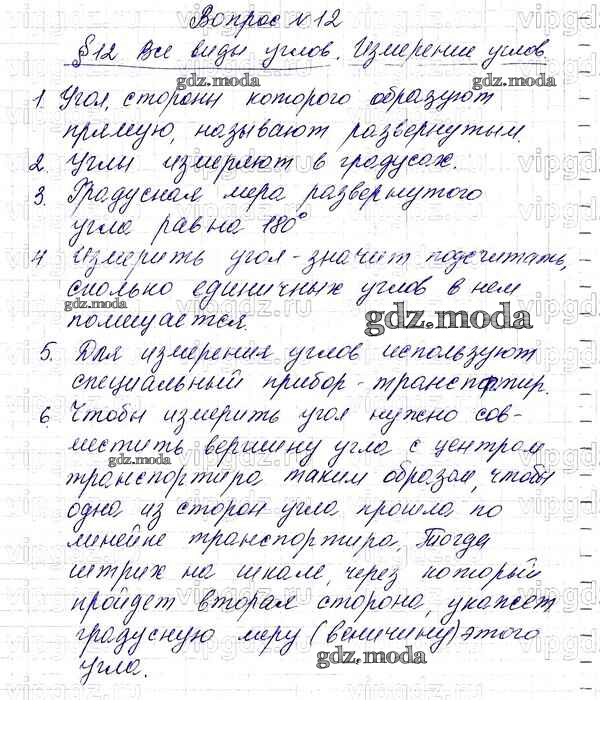 Вопрос №12
§12 Все виды углов. Измерение углов
1. Угол, стороны которого образуют
прямую, называют развернутым.
2. Углы измеряют в градусах.
3. Градусная мера развернутого
угла равна 180°
4 Измерить угол - значит подсчитать,
сколько единичных углов в нем
помещается.
5. Для измерения углов используют
специальный прибор - транспортир.
6. Чтобы измерить угол нужно сов-
местить вершину угла с центром
транспортира таким образом, чтобы
одна из сторон угла прошла по
линейке транспортира. Тогда
штрих на шкале, через который
пройдет вторая сторона, укажет
градусную меру (величину) этого
угла.
gdz.moda
gdz.moda
gdz.moda
gdz.moda
gdz.moda